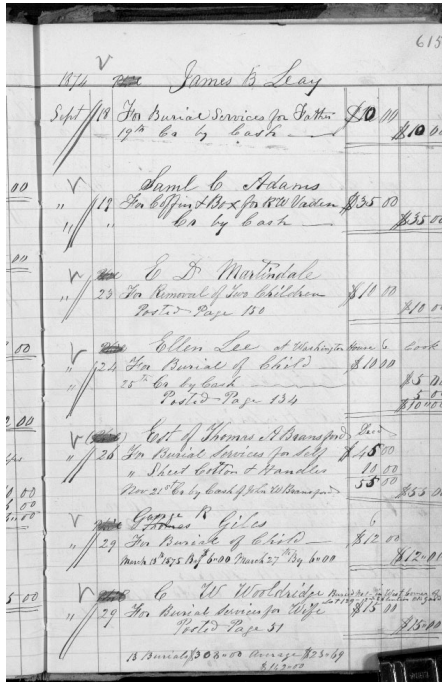 615
1874 James B Leay
Sept 18 For Burial Services for Father $10 00
19th Cr by Cash $10 00
Saml C Adams
" 19 For Coffin & Box for R W Vaden $35 00
" " Cr by Cash $35 00
E D Martindale
" 23 For Removal of Two Children $10 00
Posted Page 150 $10 00
Ellen Lee at Washington House 6 Cook
" 24 For Burial of Child $10 00
25th Cr by Cash $5 00
Posted Page 134 5 00
$10 00
Est of Thomas A Bransford Decd
" 26 For Burial Services for Self $45 00
" Sheet Cotton & Handles 10 00
Nov 21st Cr by Cash of John W Bransford 55 00 $55 00
George R Giles 6
" 29 For Burial of Child $12 00
March 18th 1875 By $6.00 March 27th By 6.00 $12.00
C W Wooldridge Buried
" 29 For Burial Services for Wife $15 00
Posted Page 51 $15.00
13 Burials $308.00 Average $23.69